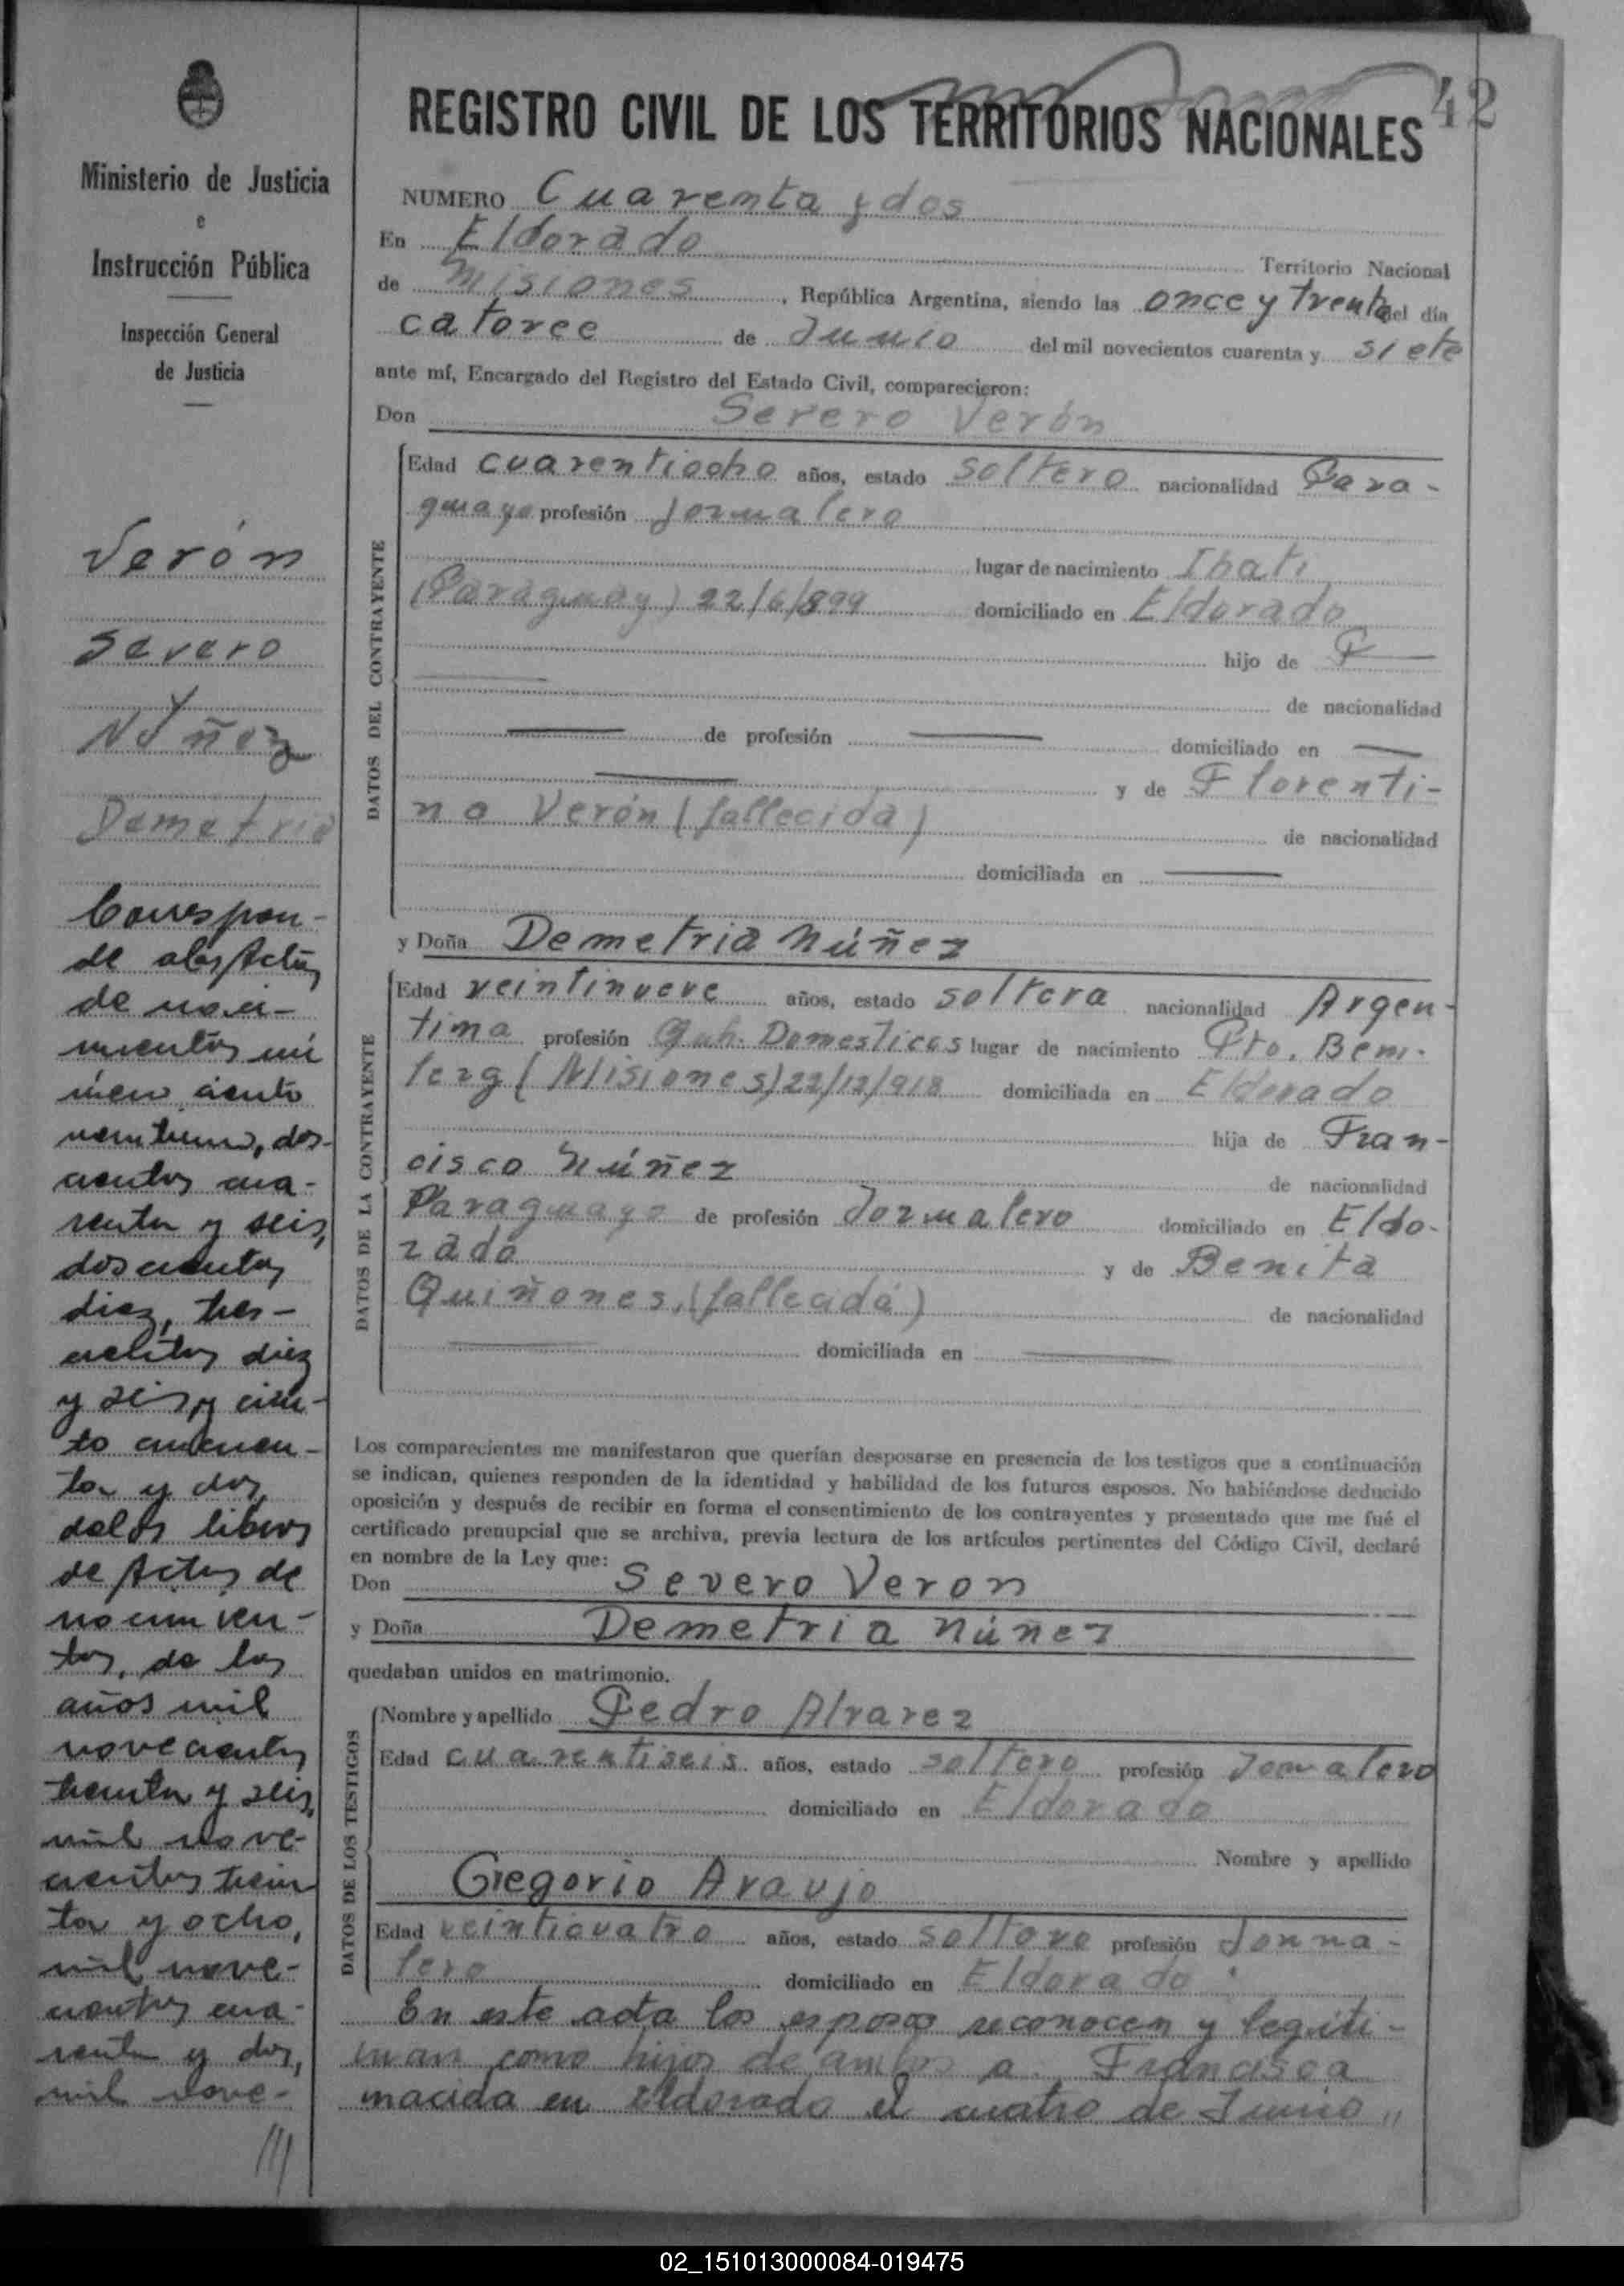 42
REGISTRO CIVIL DE LOS TERRITORIOS NACIONALES
Ministerio de Justicia
e
Instrucción Pública
Inspección General
de Justicia
Verón
Severo
y
Núñez
Demetria
Correspon-
de a las Actas
de naci-
mientos nú
mero ciento
veintiuno, dos-
cientos cua-
renta y seis,
doscientos
diez, tres-
cientos diez
y seis y cien-
to cincuen-
ta y dos,
de los libros
de Actas de
nacimien-
tos, de los
años mil
novecientos
treinta y seis,
mil nove-
cientos trein
ta y ocho,
mil nove-
cientos cua-
renta y dos,
mil nove-
///
NUMERO Cuarenta y dos
En Eldorado Territorio Nacional
de Misiones, República Argentina, siendo las once y treinta del día
catorce de Junio del mil novecientos cuarenta y siete
ante mí, Encargado del Registro del Estado Civil, comparecieron:
Don Severo Verón
DATOS DEL CONTRAYENTE
Edad cuarentiocho años, estado soltero nacionalidad Para-
guayo profesión Jornalero
lugar de nacimiento Ihati
(Paraguay) 22/6/899 domiciliado en Eldorado
hijo de
de nacionalidad
de profesión domiciliado en
y de Florenti-
na Verón (fallecida) de nacionalidad
domiciliada en
y Doña Demetria Núñez
DATOS DE LA CONTRAYENTE
Edad veintinueve años, estado soltera nacionalidad Argen-
tina profesión Queh. Domesticos lugar de nacimiento Pto. Bem-
lerg (Misiones) 22/12/918 domiciliada en Eldorado
hija de Fran-
cisco Núñez de nacionalidad
Paraguayo de profesión Jornalero domiciliado en Eldo-
rado y de Benita
Quiñones, (fallecida) de nacionalidad
domiciliada en
Los comparecientes me manifestaron que querían desposarse en presencia de los testigos que a continuación
se indican, quienes responden de la identidad y habilidad de los futuros esposos. No habiéndose deducido
oposición y después de recibir en forma el consentimiento de los contrayentes y presentado que me fué el
certificado prenupcial que se archiva, previa lectura de los artículos pertinentes del Código Civil, declaré
en nombre de la Ley que:
Don Severo Veron
y Doña Demetria Núñez
quedaban unidos en matrimonio.
DATOS DE LOS TESTIGOS
Nombre y apellido Pedro Alvarez
Edad cuarentiseis años, estado soltero profesión Jornalero
domiciliado en Eldorado
Nombre y apellido
Gregorio Araujo
Edad veinticuatro años, estado soltero profesión Jorna-
lero domiciliado en Eldorado.
En este acta los esposos reconocen y legiti-
man como hijos de ambos a Francisca
nacida en Eldorado el cuatro de Junio "
02_151013000084-019475